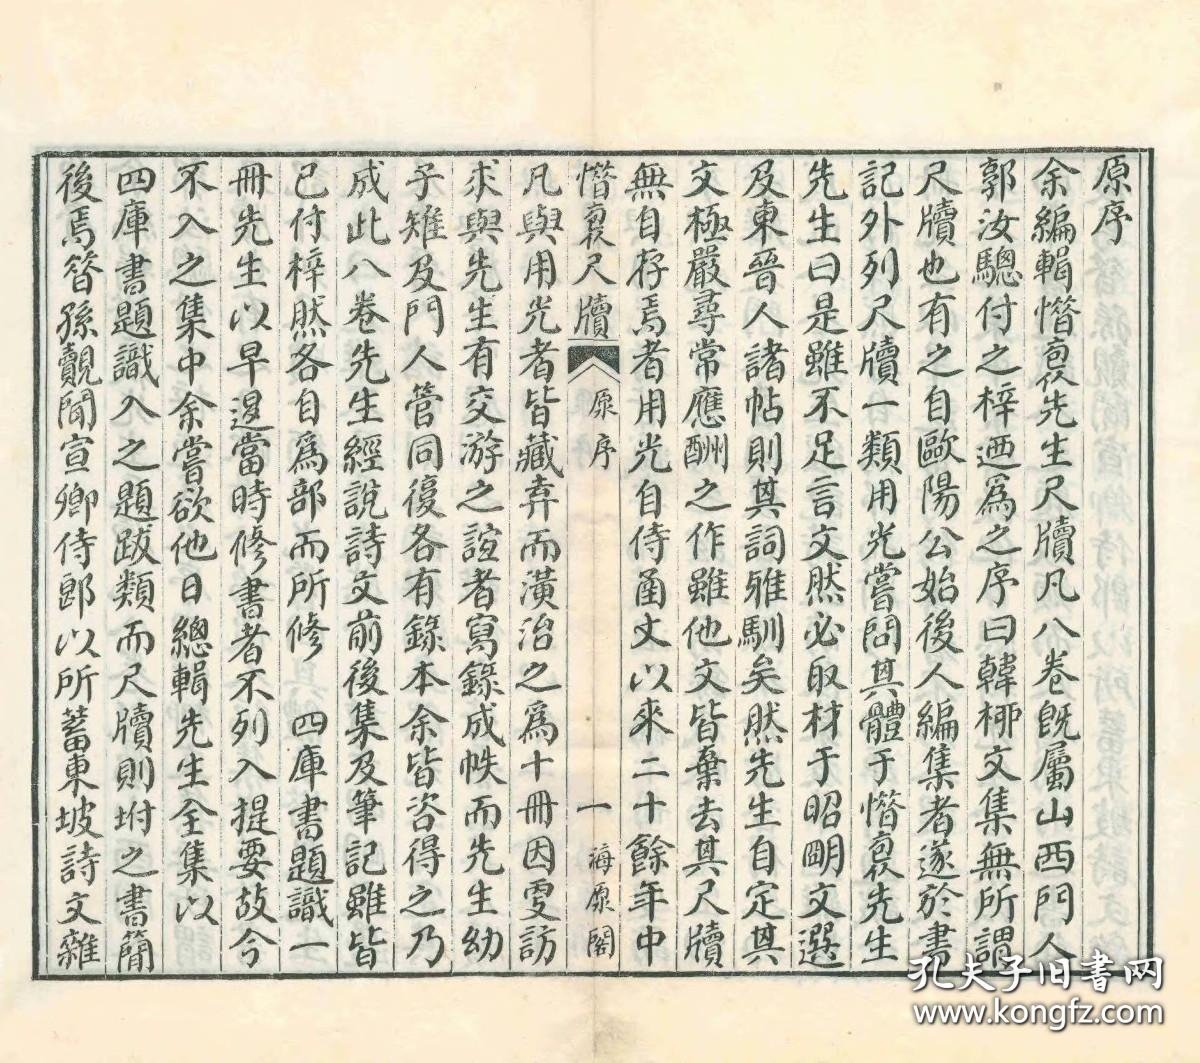 原序
余編輯惜裒先生尺牘凡八卷既屬山西門人
郭汝驄付之梓迺爲之序曰韓栁文集無所謂
尺牘也有之自歐陽公始後人編集者遂於書
記外列尺牘一類用光嘗問其體于惜裒先生
先生曰是雖不足言文然必取材于昭明文選
及東晉人諸帖則其詞雅馴矣然先生自定其
文極嚴尋常應酬之作雖他文皆棄去其尺牘
無自存焉者用光自侍函丈以來二十餘年中
惜裒尺牘
原序
一
海源閣
凡與用光者皆藏弆而潢治之爲十冊因更訪
求與先生有交游之誼者寫錄成帙而先生幼
子雉及門人管同復各有錄本余皆咨得之乃
成此八卷先生經說詩文前後集及筆記雖皆
已付梓然各自爲部而所修 四庫書題識一
冊先生以早退當時修書者不列入提要故今
不入之集中余嘗欲他日總輯先生全集以
四庫書題識入之題跋類而尺牘則坿之書簡
後焉答孫覿聞宣卿侍郎以所蓄東坡詩文雜
孔夫子旧书网
www.kongfz.com